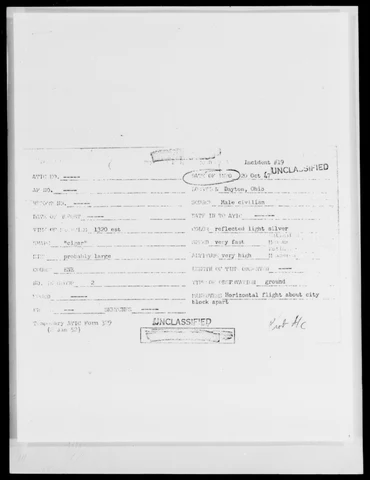 Incident #19
ATIC NO. —
DATE OF INFO 20 Oct 47
UNCLASSIFIED
AF NO. —
LOCATION Dayton, Ohio
REPORT NO. —
SOURCE Male civilian
DATE OF REPORT —
DATE IN TO ATIC —
TIME OF SIGHTING 1320 est
COLOR reflected light silver
SHAPE "cigar"
SPEED very fast
SIZE probably large
ALTITUDE very high
COURSE
LENGTH OF TIME OBSERVED —
NO. IN GROUP 2
TYPE OF OBSERVATION ground
SOUND —
MANEUVERS Horizontal flight about city
block apart
Temporary ATIC Form 329
(2 Jan 52)
UNCLASSIFIED